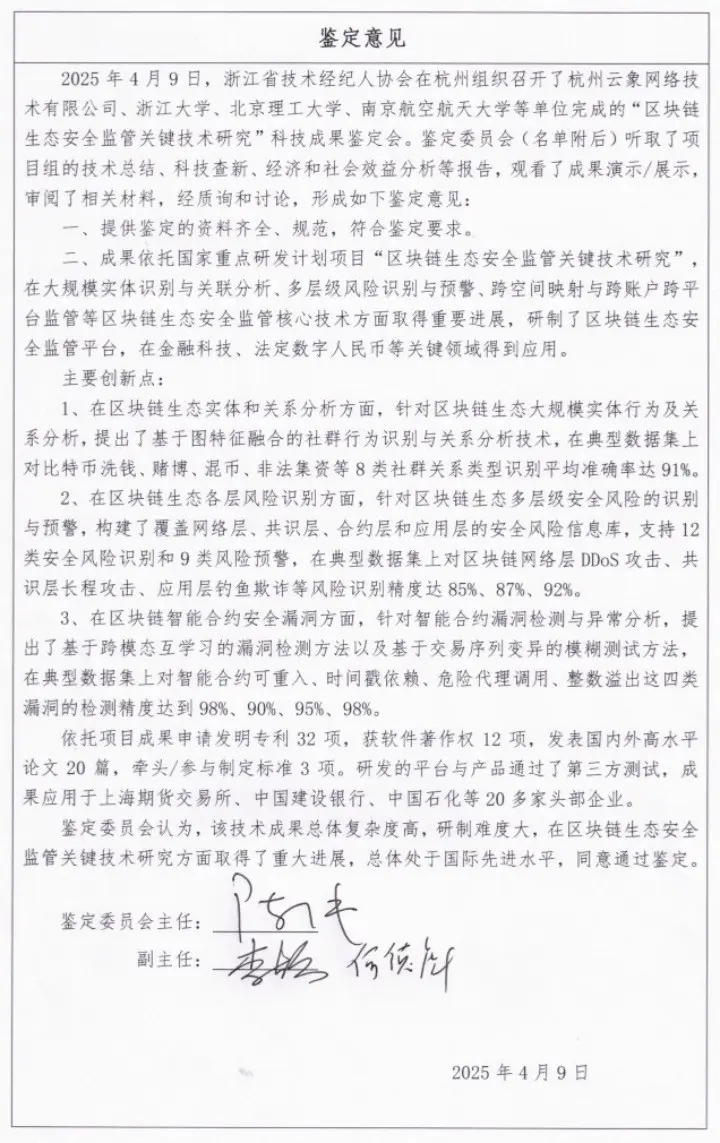 鉴定意见
2025 年 4 月 9 日，浙江省技术经纪人协会在杭州组织召开了杭州云象网络技
术有限公司、浙江大学、北京理工大学、南京航空航天大学等单位完成的“区块链
生态安全监管关键技术研究”科技成果鉴定会。鉴定委员会（名单附后）听取了项
目组的技术总结、科技查新、经济和社会效益分析等报告，观看了成果演示/展示，
审阅了相关材料，经质询和讨论，形成如下鉴定意见：
一、提供鉴定的资料齐全、规范，符合鉴定要求。
二、成果依托国家重点研发计划项目“区块链生态安全监管关键技术研究”，
在大规模实体识别与关联分析、多层级风险识别与预警、跨空间映射与跨账户跨平
台监管等区块链生态安全监管核心技术方面取得重要进展，研制了区块链生态安
全监管平台，在金融科技、法定数字人民币等关键领域得到应用。
主要创新点：
1、在区块链生态实体和关系分析方面，针对区块链生态大规模实体行为及关
系分析，提出了基于图特征融合的社群行为识别与关系分析技术，在典型数据集上
对比特币洗钱、赌博、混币、非法集资等 8 类社群关系类型识别平均准确率达 91%。
2、在区块链生态各层风险识别方面，针对区块链生态多层级安全风险的识别
与预警，构建了覆盖网络层、共识层、合约层和应用层的安全风险信息库，支持 12
类安全风险识别和 9 类风险预警，在典型数据集上对区块链网络层 DDoS 攻击、共
识层长程攻击、应用层钓鱼欺诈等风险识别精度达 85%、87%、92%。
3、在区块链智能合约安全漏洞方面，针对智能合约漏洞检测与异常分析，提
出了基于跨模态互学习的漏洞检测方法以及基于交易序列变异的模糊测试方法，
在典型数据集上对智能合约可重入、时间戳依赖、危险代理调用、整数溢出这四类
漏洞的检测精度达到 98%、90%、95%、98%。
依托项目成果申请发明专利 32 项，获软件著作权 12 项，发表国内外高水平
论文 20 篇，牵头/参与制定标准 3 项。研发的平台与产品通过了第三方测试，成
果应用于上海期货交易所、中国建设银行、中国石化等 20 多家头部企业。
鉴定委员会认为，该技术成果总体复杂度高，研制难度大，在区块链生态安全
监管关键技术研究方面取得了重大进展，总体处于国际先进水平，同意通过鉴定。
鉴定委员会主任：
副主任：
2025 年 4 月 9 日